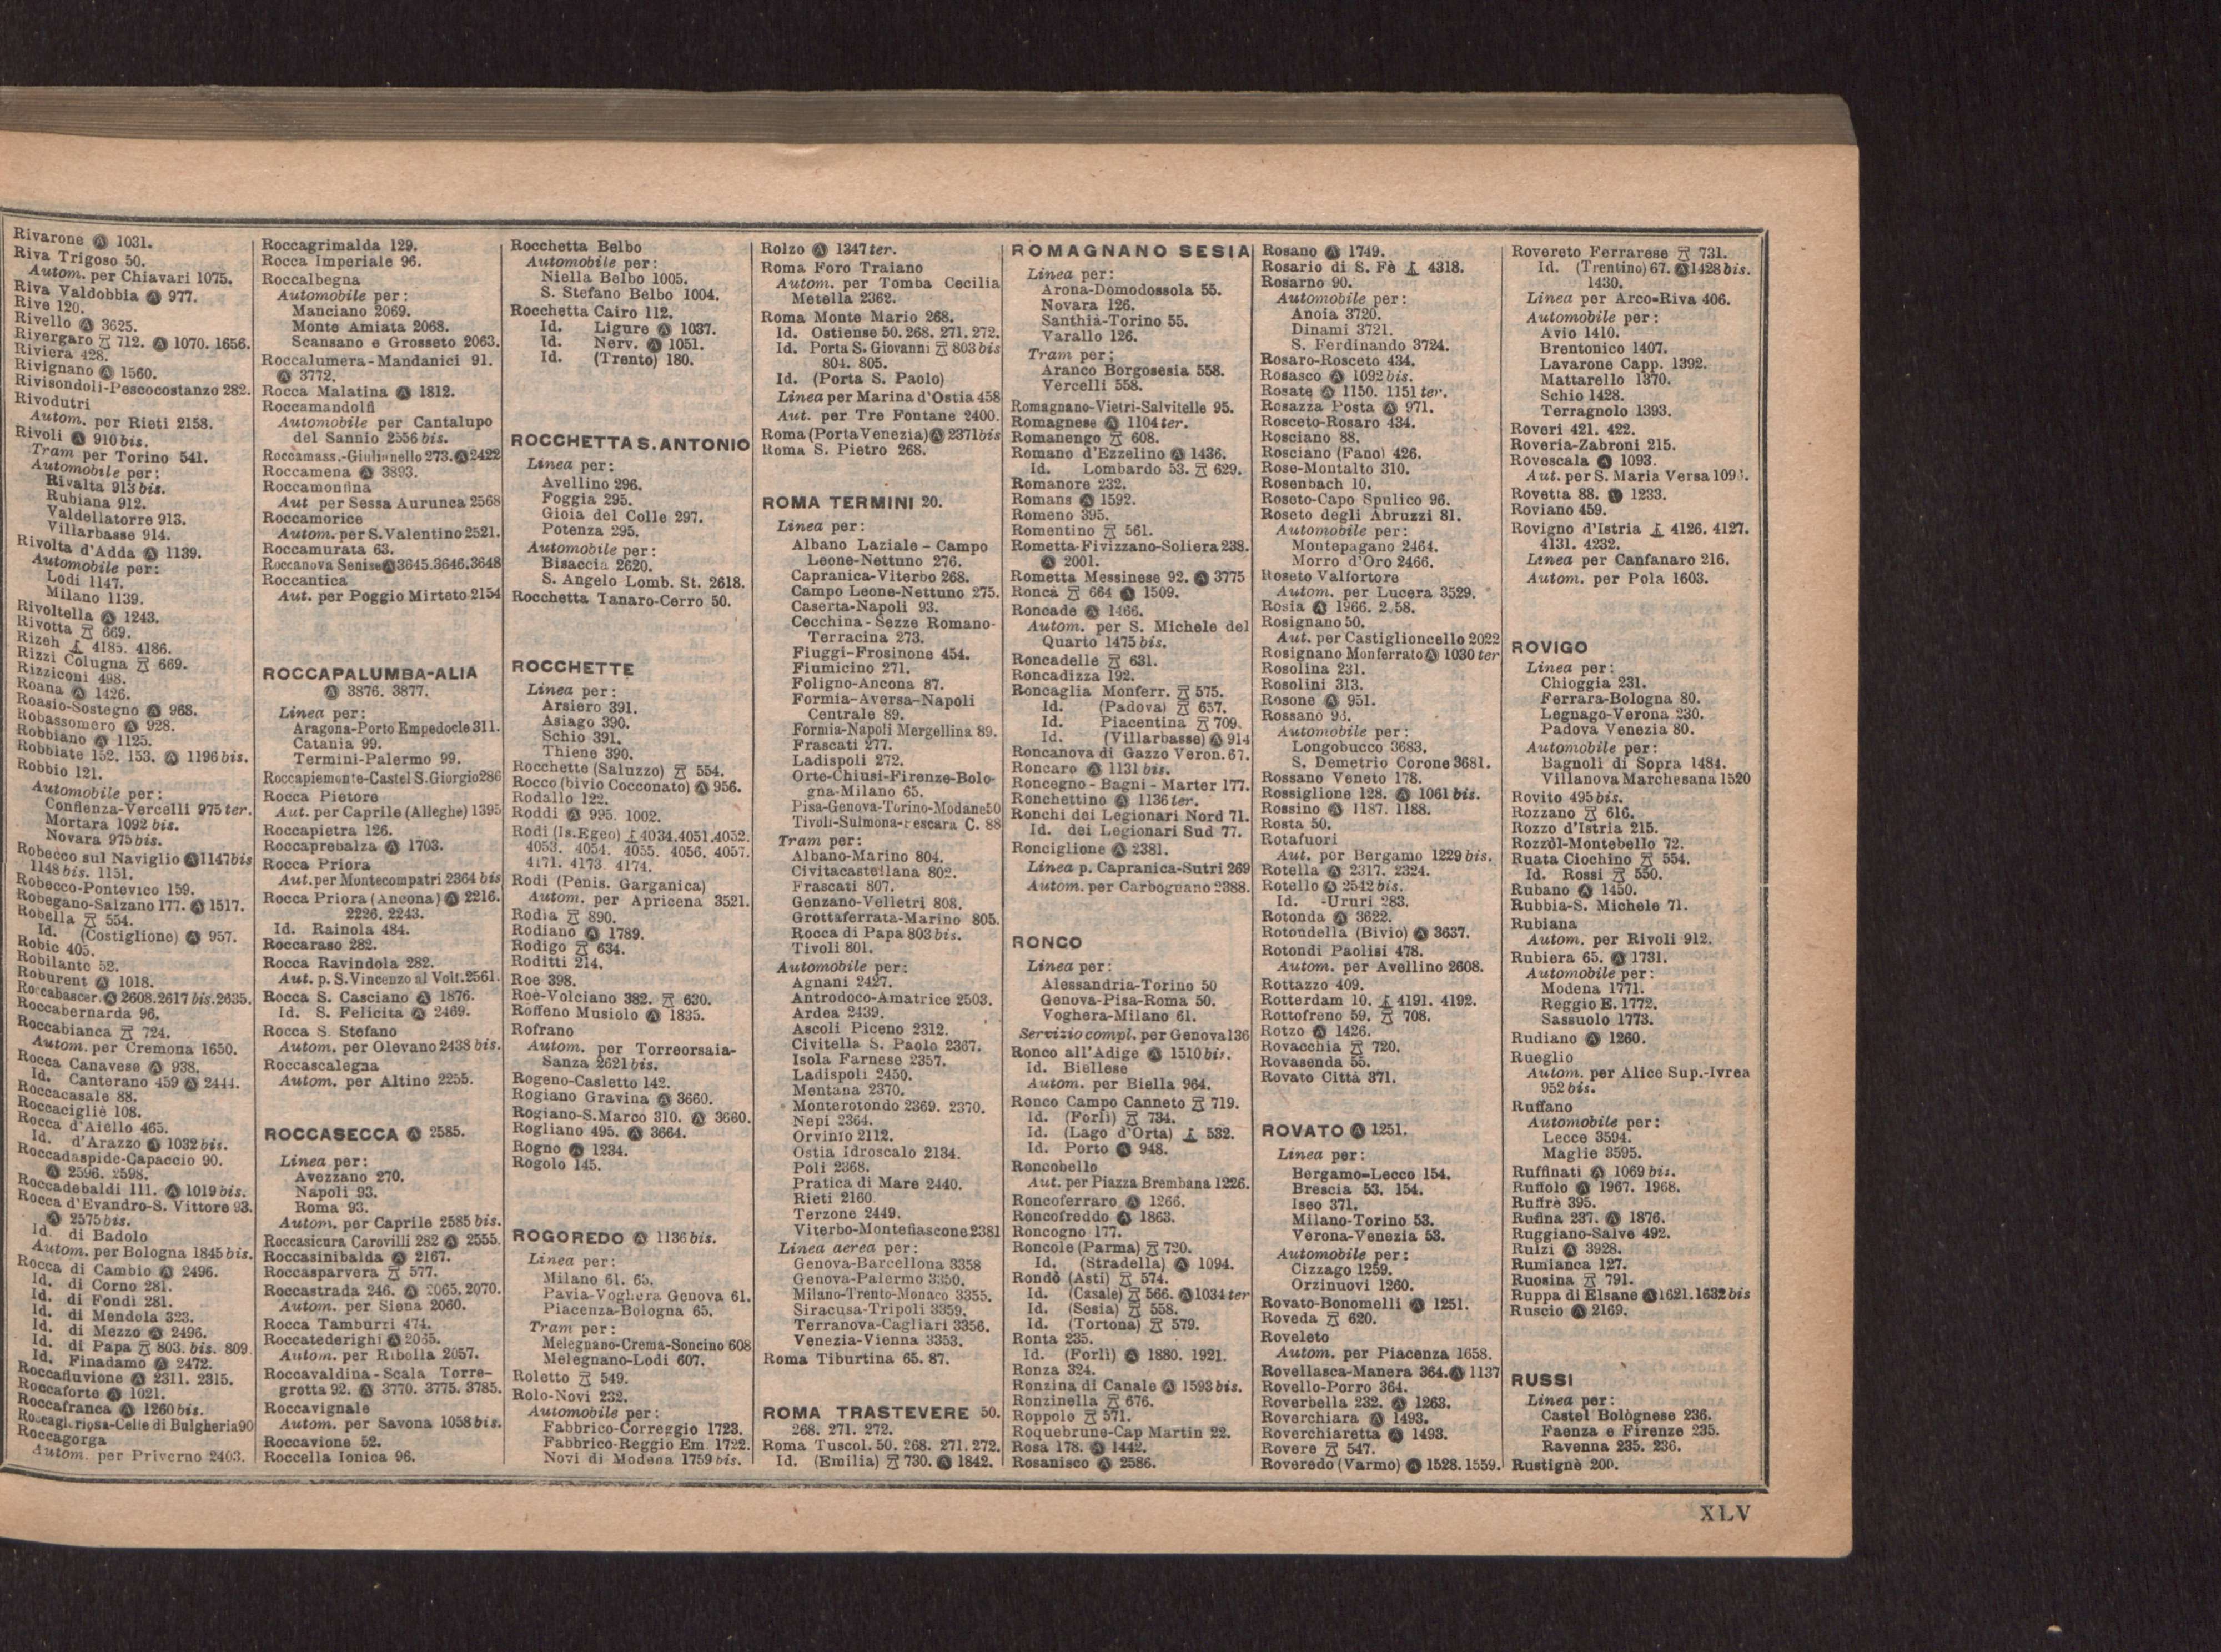 Rivarone Ⓐ 1031.
Riva Trigoso 50.
Autom. per Chiavari 1075.
Riva Valdobbia Ⓐ 977.
Rive 120.
Rivello Ⓐ 3625.
Rivergaro 712. Ⓐ 1070. 1656.
Riviera 428.
Rivignano Ⓐ 1560.
Rivisondoli-Pescocostanzo 282.
Rivodutri
Autom. per Rieti 2158.
Rivoli Ⓐ 910 bis.
Tram per Torino 541.
Automobile per:
Rivalta 913 bis.
Rubiana 912.
Valdellatorre 913.
Villarbasse 914.
Rivolta d'Adda Ⓐ 1139.
Automobile per:
Lodi 1147.
Milano 1139.
Rivoltella Ⓐ 1243.
Rivotta 669.
Rizeh 4185. 4186.
Rizzi Colugna 669.
Rizziconi 498.
Roana Ⓐ 1426.
Roasio-Sostegno Ⓐ 968.
Robassomero Ⓐ 928.
Robbiano Ⓐ 1125.
Robbiate 152. 153. Ⓐ 1196 bis.
Robbio 121.
Automobile per:
Confienza-Vercelli 975 ter.
Mortara 1092 bis.
Novara 975 bis.
Robecco sul Naviglio Ⓐ 1147 bis
1148 bis. 1151.
Robecco-Pontevico 159.
Robegano-Salzano 177. Ⓐ 1517.
Robella 554.
Id. (Costiglione) Ⓐ 957.
Robic 405.
Robilante 52.
Roburent Ⓐ 1018.
Roccabascer. Ⓐ 2608. 2617 bis. 2635.
Roccabernarda 96.
Roccabianca 724.
Autom. per Cremona 1650.
Rocca Canavese Ⓐ 938.
Id. Canterano 459 Ⓐ 2444.
Roccacasale 88.
Roccacigliè 108.
Rocca d'Aiello 465.
Id. d'Arazzo Ⓐ 1032 bis.
Roccadaspide-Capaccio 90.
Ⓐ 2596. 2598.
Roccadebaldi 111. Ⓐ 1019 bis.
Rocca d'Evandro-S. Vittore 93.
Ⓐ 2575 bis.
Id. di Badolo
Autom. per Bologna 1845 bis.
Rocca di Cambio Ⓐ 2496.
Id. di Corno 281.
Id. di Fondi 281.
Id. di Mendola 323.
Id. di Mezzo Ⓐ 2496.
Id. di Papa 803. bis. 809
Id. Finadamo Ⓐ 2472.
Roccafluvione Ⓐ 2311. 2315.
Roccaforte Ⓐ 1021.
Roccafranca Ⓐ 1260 bis.
Roccagloriosa-Celle di Bulgheria 90
Roccagorga
Autom. per Priverno 2403.
Roccagrimalda 129.
Rocca Imperiale 96.
Roccalbegna
Automobile per:
Manciano 2069.
Monte Amiata 2068.
Scansano e Grosseto 2063.
Roccalumera-Mandanici 91.
Ⓐ 3772.
Rocca Malatina Ⓐ 1812.
Roccamandolfi
Automobile per Cantalupo
del Sannio 2556 bis.
Roccamass.-Giulianello 273. Ⓐ 2422
Roccamena Ⓐ 3893.
Roccamonfina
Aut per Sessa Aurunca 2568
Roccamorice
Autom. per S. Valentino 2521.
Roccamurata 63.
Roccanova Senise Ⓐ 3645. 3646. 3648
Roccantica
Aut. per Poggio Mirteto 2154
ROCCAPALUMBA-ALIA
Ⓐ 3876. 3877.
Linea per:
Aragona-Porto Empedocle 311.
Catania 99.
Termini-Palermo 99.
Roccapiemonte-Castel S. Giorgio 286
Rocca Pietore
Aut. per Caprile (Alleghe) 1395
Roccapietra 126.
Roccaprebalza Ⓐ 1703.
Rocca Priora
Aut. per Montecompatri 2364 bis
Rocca Priora (Ancona) Ⓐ 2216.
2226. 2243.
Id. Rainola 484.
Roccaraso 282.
Rocca Ravindola 282.
Aut. p. S. Vincenzo al Volt. 2561.
Rocca S. Casciano Ⓐ 1876.
Id. S. Felicita Ⓐ 2469.
Rocca S. Stefano
Autom. per Olevano 2438 bis.
Roccascalegna
Autom. per Altino 2255.
ROCCASECCA Ⓐ 2585.
Linea per:
Avezzano 270.
Napoli 93.
Roma 93.
Autom. per Caprile 2585 bis.
Roccasicura Carovilli 282 Ⓐ 2555.
Roccasinibalda Ⓐ 2167.
Roccasparvera 577.
Roccastrada 246. Ⓐ 2065. 2070.
Autom. per Siena 2060.
Rocca Tamburri 474.
Roccatederighi Ⓐ 2055.
Autom. per Ribolla 2057.
Roccavaldina-Scala Torre-
grotta 92. Ⓐ 3770. 3775. 3785.
Roccavignale
Autom. per Savona 1058 bis.
Roccavione 52.
Roccella Ionica 96.
Rocchetta Belbo
Automobile per:
Niella Belbo 1005.
S. Stefano Belbo 1004.
Rocchetta Cairo 112.
Id. Ligure Ⓐ 1037.
Id. Nerv. Ⓐ 1051.
Id. (Trento) 180.
ROCCHETTA S. ANTONIO
Linea per:
Avellino 296.
Foggia 295.
Gioia del Colle 297.
Potenza 295.
Automobile per:
Bisaccia 2620.
S. Angelo Lomb. St. 2618.
Rocchetta Tanaro-Cerro 50.
ROCCHETTE
Linea per:
Arsiero 391.
Asiago 390.
Schio 391.
Thiene 390.
Rocchette (Saluzzo) 554.
Rocco (bivio Cocconato) Ⓐ 956.
Rodallo 122.
Roddi Ⓐ 995. 1002.
Rodi (Is. Egeo) 4034. 4051. 4052.
4053. 4054. 4055. 4056. 4057.
4171. 4173 4174.
Rodi (Penis. Garganica)
Autom. per Apricena 3521.
Rodia 890.
Rodiano Ⓐ 1789.
Rodigo 634.
Roditti 214.
Roe 398.
Roè-Volciano 382. 630.
Roffeno Musiolo Ⓐ 1835.
Rofrano
Autom. per Torreorsaia-
Sanza 2621 bis.
Rogeno-Casletto 142.
Rogiano Gravina Ⓐ 3660.
Rogiano-S. Marco 310. Ⓐ 3660.
Rogliano 495. Ⓐ 3664.
Rogno Ⓐ 1234.
Rogolo 145.
ROGOREDO Ⓐ 1136 bis.
Linea per:
Milano 61. 65.
Pavia-Voghera Genova 61.
Piacenza-Bologna 65.
Tram per:
Melegnano-Crema-Soncino 608
Melegnano-Lodi 607.
Roletto 549.
Rolo-Novi 232.
Automobile per:
Fabbrico-Correggio 1723.
Fabbrico-Reggio Em 1722.
Novi di Modena 1759 bis.
Rolzo Ⓐ 1347 ter.
Roma Foro Traiano
Autom. per Tomba Cecilia
Metella 2362.
Roma Monte Mario 268.
Id. Ostiense 50. 268. 271. 272.
Id. Porta S. Giovanni 803 bis
804. 805.
Id. (Porta S. Paolo)
Linea per Marina d'Ostia 458
Aut. per Tre Fontane 2400.
Roma (Porta Venezia) Ⓐ 2371 bis
Roma S. Pietro 268.
ROMA TERMINI 20.
Linea per:
Albano Laziale - Campo
Leone-Nettuno 276.
Capranica-Viterbo 268.
Campo Leone-Nettuno 275.
Caserta-Napoli 93.
Cecchina - Sezze Romano-
Terracina 273.
Fiuggi-Frosinone 454.
Fiumicino 271.
Foligno-Ancona 87.
Formia-Aversa-Napoli
Centrale 89.
Formia-Napoli Mergellina 89.
Frascati 277.
Ladispoli 272.
Orte-Chiusi-Firenze-Bolo-
gna-Milano 65.
Pisa-Genova-Torino-Modane 50
Tivoli-Sulmona-Pescara C. 88
Tram per:
Albano-Marino 804.
Civitacastellana 802.
Frascati 807.
Genzano-Velletri 808.
Grottaferrata-Marino 805.
Rocca di Papa 803 bis.
Tivoli 801.
Automobile per:
Agnani 2427.
Antrodoco-Amatrice 2503.
Ardea 2439.
Ascoli Piceno 2312.
Civitella S. Paolo 2367.
Isola Farnese 2357.
Ladispoli 2450.
Mentana 2370.
Monterotondo 2369. 2370.
Nepi 2364.
Orvinio 2112.
Ostia Idroscalo 2134.
Poli 2368.
Pratica di Mare 2440.
Rieti 2160
Terzone 2449.
Viterbo-Montefiascone 2381
Linea aerea per:
Genova-Barcellona 3358
Genova-Palermo 3350.
Milano-Trento-Monaco 3355.
Siracusa-Tripoli 3359.
Terranova-Cagliari 3356.
Venezia-Vienna 3353.
Roma Tiburtina 65. 87.
ROMA TRASTEVERE 50.
268. 271. 272.
Roma Tuscol. 50. 268. 271. 272.
Id. (Emilia) 730. Ⓐ 1842.
ROMAGNANO SESIA
Linea per:
Arona-Domodossola 55.
Novara 126.
Santhià-Torino 55.
Varallo 126.
Tram per:
Aranco Borgosesia 558.
Vercelli 558.
Romagnano-Vietri-Salvitelle 95.
Romagnese Ⓐ 1104 ter.
Romanengo 608.
Romano d'Ezzelino Ⓐ 1436.
Id. Lombardo 53. 629.
Romanore 232.
Romans Ⓐ 1592.
Romeno 395.
Romentino 561.
Rometta-Fivizzano-Soliera 238.
Ⓐ 2001.
Rometta Messinese 92. Ⓐ 3775
Roncà 664 Ⓐ 1509.
Roncade Ⓐ 1466.
Autom. per S. Michele del
Quarto 1475 bis.
Roncadelle 631.
Roncadizza 192.
Roncaglia Monferr. 575.
Id. (Padova) 657.
Id. Piacentina 709.
Id. (Villarbasse) Ⓐ 914
Roncanova di Gazzo Veron. 67.
Roncaro Ⓐ 1131 bis.
Roncegno - Bagni - Marter 177.
Ronchettino Ⓐ 1136 ter.
Ronchi dei Legionari Nord 71.
Id. dei Legionari Sud 77.
Ronciglione Ⓐ 2381.
Linea p. Capranica-Sutri 269
Autom. per Carbognano 2388.
RONCO
Linea per:
Alessandria-Torino 50
Genova-Pisa-Roma 50.
Voghera-Milano 61.
Servizio compl. per Genova 136
Ronco all'Adige Ⓐ 1510 bis.
Id. Biellese
Autom. per Biella 964.
Ronco Campo Canneto 719.
Id. (Forlì) 734.
Id. (Lago d'Orta) 532.
Id. Porto Ⓐ 948.
Roncobello
Aut. per Piazza Brembana 1226.
Roncoferraro Ⓐ 1266.
Roncofreddo Ⓐ 1863.
Roncogno 177.
Roncole (Parma) 720.
Id. (Stradella) Ⓐ 1094.
Rondò (Asti) 574.
Id. (Casale) 566. Ⓐ 1034 ter
Id. (Sesia) 558.
Id. (Tortona) 579.
Ronta 235.
Id. (Forlì) Ⓐ 1880. 1921.
Ronza 324.
Ronzina di Canale Ⓐ 1593 bis.
Ronzinella 676.
Roppolo 571.
Roquebrune-Cap Martin 22.
Rosà 178. Ⓐ 1442.
Rosanisco Ⓐ 2586.
Rosano Ⓐ 1749.
Rosario di S. Fè 4318.
Rosarno 90.
Automobile per:
Anoia 3720.
Dinami 3721.
S. Ferdinando 3724.
Rosaro-Rosceto 434.
Rosasco Ⓐ 1092 bis.
Rosate Ⓐ 1150. 1151 ter.
Rosazza Posta Ⓐ 971.
Rosceto-Rosaro 434.
Rosciano 88.
Rosciano (Fano) 426.
Rose-Montalto 310.
Rosenbach 10.
Roseto-Capo Spulico 96.
Roseto degli Abruzzi 81.
Automobile per:
Montepagano 2464.
Morro d'Oro 2466.
Roseto Valfortore
Autom. per Lucera 3529.
Rosia Ⓐ 1966.
Rosignano 50.
Aut. per Castiglioncello 2022
Rosignano Monferrato Ⓐ 1030 ter
Rosolina 231.
Rosolini 313.
Rosone Ⓐ 951.
Rossano
Automobile per:
Longobucco 3683.
S. Demetrio Corone 3681.
Rossano Veneto 178.
Rossiglione 128. Ⓐ 1061 bis.
Rossino Ⓐ 1187. 1188.
Rosta 50.
Rotafuori
Aut. per Bergamo 1229 bis.
Rotella Ⓐ 2317. 2324.
Rotello Ⓐ 2542 bis.
Id. -Ururi 283.
Rotonda Ⓐ 3622.
Rotondella (Bivio) Ⓐ 3637.
Rotondi Paolisi 478.
Autom. per Avellino 2608.
Rottazzo 409.
Rotterdam 10. 4191. 4192.
Rottofreno 59. 708.
Rotzo Ⓐ 1426.
Rovacchia 720.
Rovasenda 55.
Rovato Città 371.
ROVATO Ⓐ 1251.
Linea per:
Bergamo-Lecco 154.
Brescia 53. 154.
Iseo 371.
Milano-Torino 53.
Verona-Venezia 53.
Automobile per:
Cizzago 1259.
Orzinuovi 1260.
Rovato-Bonomelli Ⓐ 1251.
Roveda 620.
Roveleto
Autom. per Piacenza 1658.
Rovellasca-Manera 364. Ⓐ 1137
Rovello-Porro 364.
Roverbella 232. Ⓐ 1263.
Roverchiara Ⓐ 1493.
Roverchiaretta Ⓐ 1493.
Rovere 547.
Roveredo (Varmo) Ⓐ 1528. 1559.
Rovereto Ferrarese 731.
Id. (Trentino) 67. Ⓐ 1428 bis.
1430.
Linea per Arco-Riva 406.
Automobile per:
Avio 1410.
Brentonico 1407.
Lavarone Capp. 1392.
Mattarello 1370.
Schio 1428.
Terragnolo 1393.
Roveri 421. 422.
Roveria-Zabroni 215.
Rovescala Ⓐ 1093.
Aut. per S. Maria Versa
Rovetta 88. Ⓐ 1233.
Roviano 459.
Rovigno d'Istria 4126. 4127.
4131. 4232.
Linea per Canfanaro 216.
Autom. per Pola 1603.
ROVIGO
Linea per:
Chioggia 231.
Ferrara-Bologna 80.
Legnago-Verona 230.
Padova Venezia 80.
Automobile per:
Bagnoli di Sopra 1484.
Villanova Marchesana 1520
Rovito 495 bis.
Rozzano 616.
Rozzo d'Istria 215.
Rozzòl-Montebello 72.
Ruata Ciochino 554.
Id. Rossi 550.
Rubano Ⓐ 1450.
Rubbia-S. Michele 71.
Rubiana
Autom. per Rivoli 912.
Rubiera 65. Ⓐ 1731.
Automobile per:
Modena 1771.
Reggio E. 1772.
Sassuolo 1773.
Rudiano Ⓐ 1260.
Rueglio
Autom. per Alice Sup.-Ivrea
952 bis.
Ruffano
Automobile per:
Lecce 3594.
Maglie 3595.
Ruffinati Ⓐ 1069 bis.
Ruffolo Ⓐ 1967. 1968.
Ruffrè 395.
Rufina 237. Ⓐ 1876.
Ruggiano-Salve 492.
Rulzi Ⓐ 3928.
Rumianca 127.
Ruosina 791.
Ruppa di Elsane Ⓐ 1621. 1632 bis
Ruscio Ⓐ 2169.
RUSSI
Linea per:
Castel Bolognese 236.
Faenza e Firenze 235.
Ravenna 235. 236.
Rustignè 200.
XLV